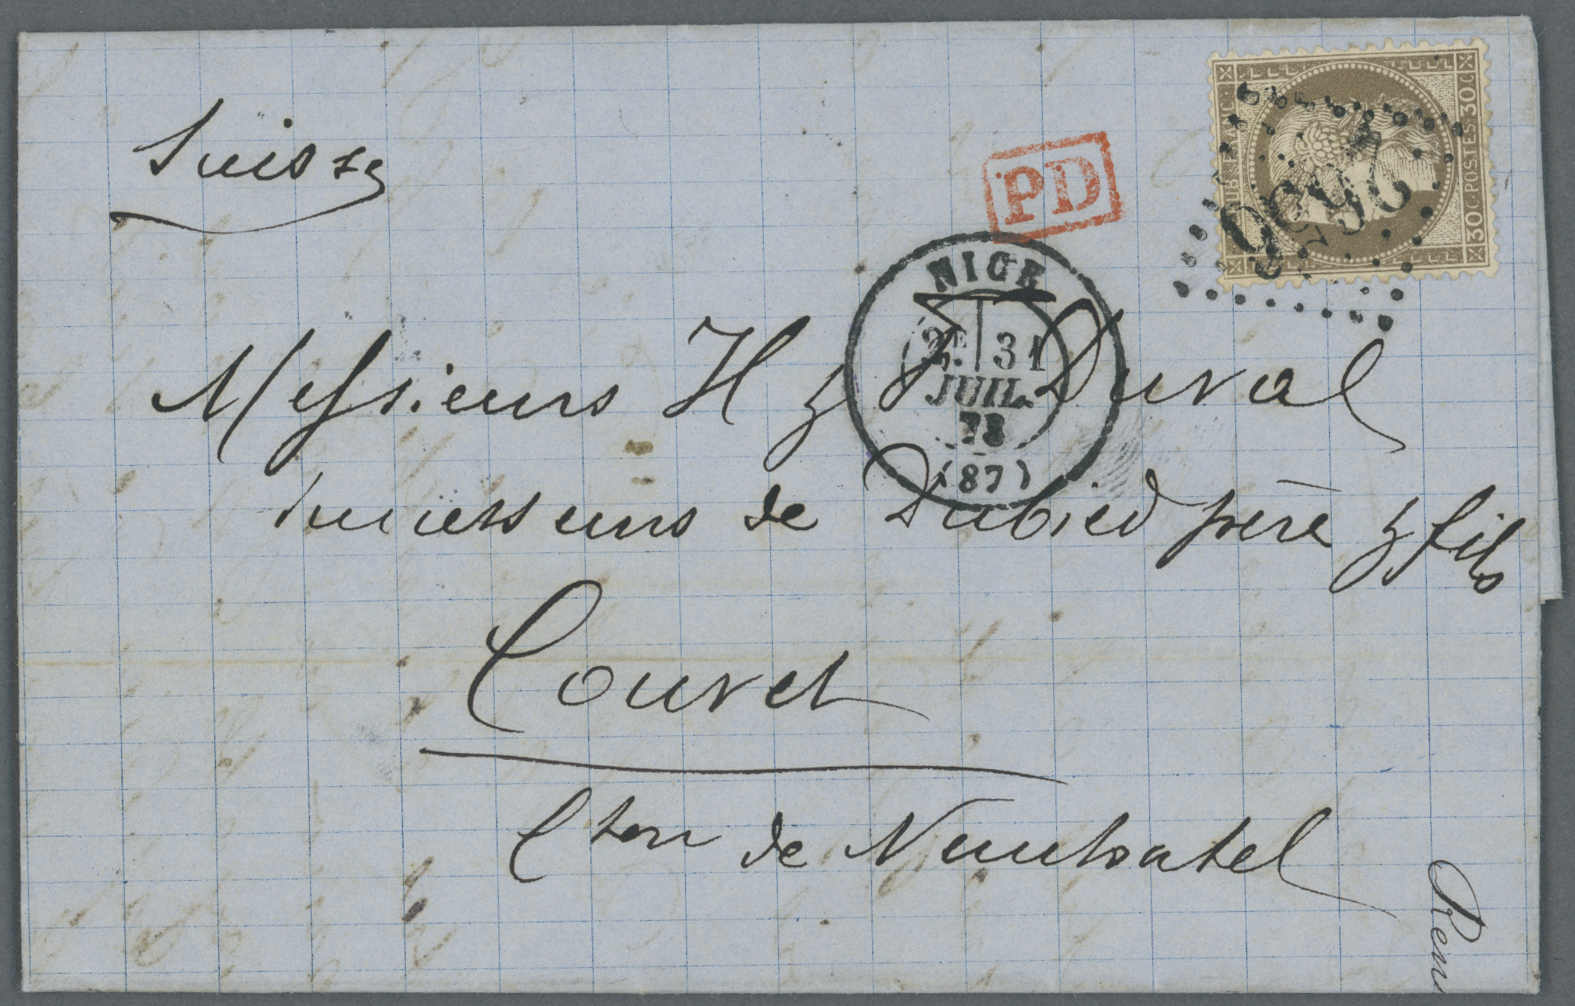 Suisse
PD
30 C. POSTES 30 C
2656
NICE
2E 31
JUIL.
73
(87)
Messieurs H & J Duval
Successeurs de Dubied père & fils
Couvet
Cton de Neuchatel